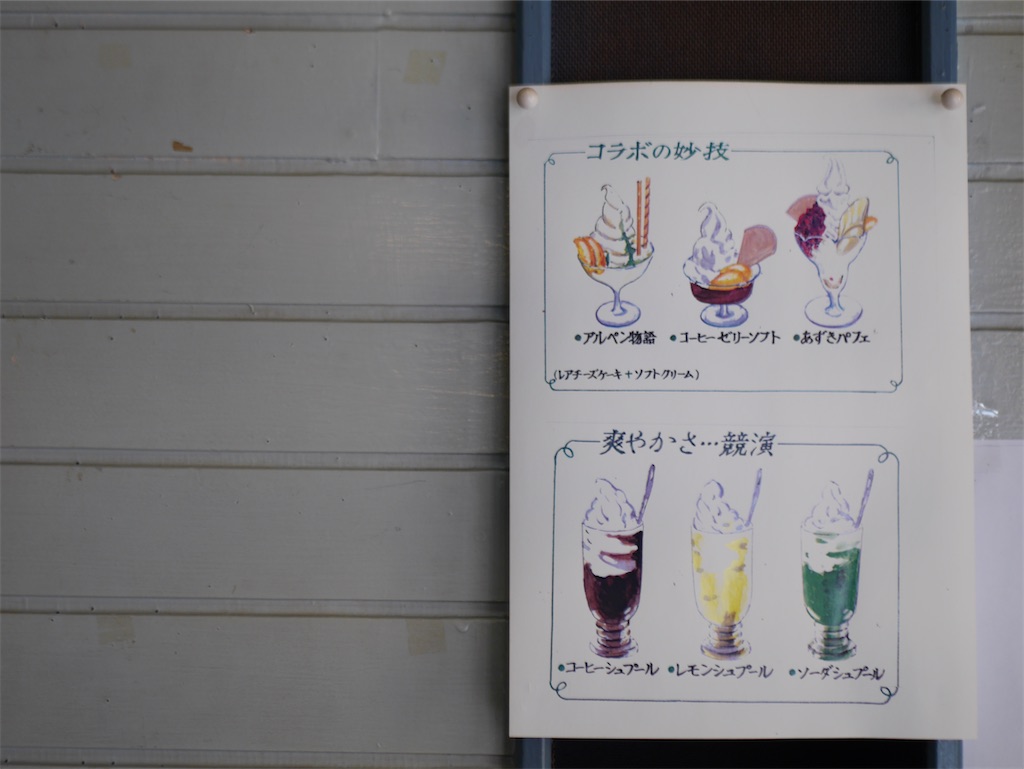 コラボの妙技
●アルペン物語 ●コーヒーゼリーソフト ●あずさパフェ
(レアチーズケーキ+ソフトクリーム)
爽やかさ…競演
●コーヒーシュプール ●レモンシュプール ●ソーダシュプール